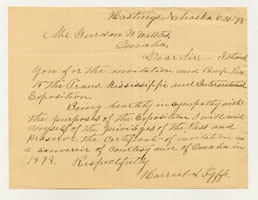 Hastings Nebraska 12-31-'97
Mr. Gurdon W. Wattles,
Omaha,
Dear Sir:- I thank
you for the invitation and Comp. Pass
to the Trans-Mississippi and International
Exposition.
Being heartily in sympathy with
the purposes of the Exposition I will avail
myself of the privileges of the Pass and
preserve the Certificate of invitation as
a souvenir of Courtesy and of Omaha in
1898.
Respectfully,
Harriet S.